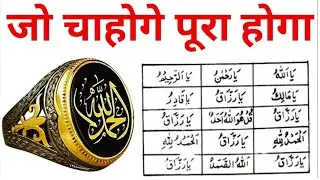 जो चाहोगे पूरा होगा
الحمد لله
يَا اَللّٰهُ يَا رَحْمٰنُ يَا اَلرَّحِيْمُ
يَا مَالِكُ يَا رَزَّاقُ يَا قَادِرُ
يَا رَزَّاقُ قُلْ هُوَ اللّٰهُ اَحَدٌ يَا رَزَّاقُ
اَلْحَمْدُ لِلّٰهِ يَا رَزَّاقُ اَلْحَمْدُ لِلّٰهِ
يَا رَزَّاقُ اَللّٰهُ الصَّمَدُ يَا رَزَّاقُ